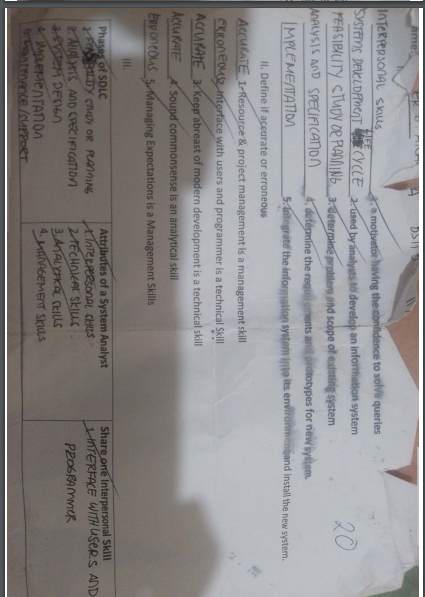 INTERPERSONAL SKILLS 1. a motivator having the confidence to solve queries
SYSTEMS DEVELOPMENT LIFE CYCLE 2. used by analysts to develop an information system
FEASIBILITY STUDY OR PLANNING 3. determine problem and scope of existing system
ANALYSIS AND SPECIFICATION 4. determine the requirements and prototypes for new system
IMPLEMENTATION 5. integrate the information system into its environment and install the new system.
20
II. Define if accurate or erroneous
ACCURATE 1. Resource & project management is a management skill
ERRONEOUS 2. Interface with users and programmer is a technical skill
ACCURATE 3. Keep abreast of modern development is a technical skill
ACCURATE 4. Sound commonsense is an analytical skill
ERRONEOUS 5. Managing Expectations is a Management Skills
III.
Phases of SDLC
1. FEASIBILITY STUDY OR PLANNING
2. ANALYSIS AND SPECIFICATION
3. SYSTEM DESIGN
4. IMPLEMENTATION
5. MAINTENANCE/SUPPORT
Attributes of a System Analyst
1. INTERPERSONAL SKILLS
2. TECHNICAL SKILLS
3. ANALYTICAL SKILLS
4. MANAGEMENT SKILLS
Share one Interpersonal Skill
1. INTERFACE WITH USERS AND
PROGRAMMER